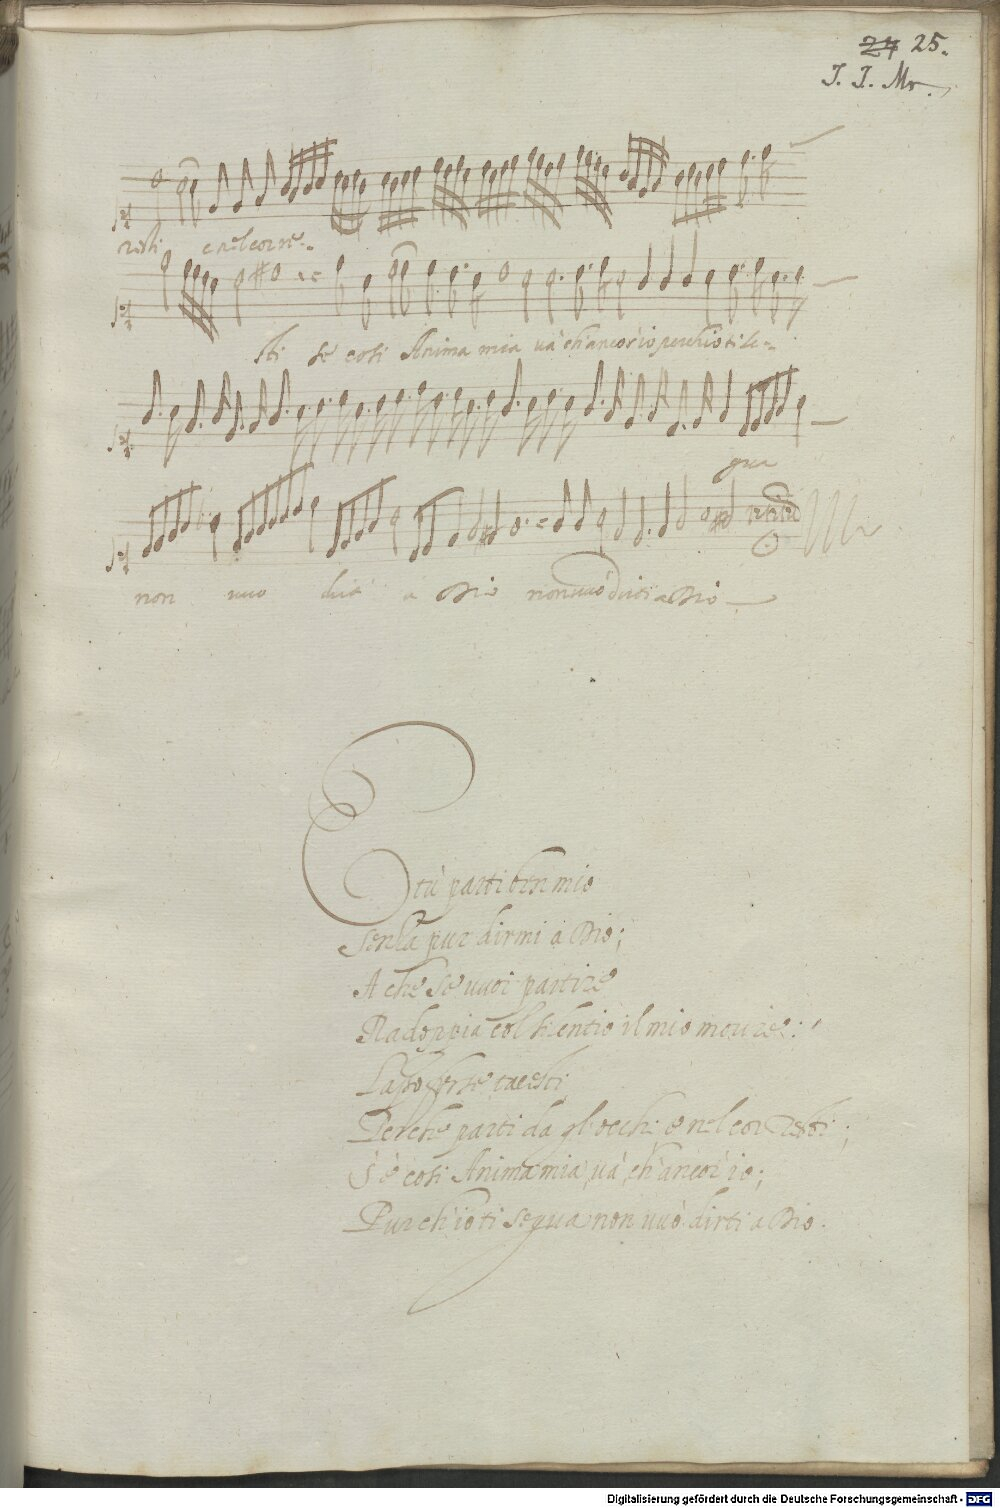 24 25.
J. J. Mr.
resti e nel cor re-
sti se cosi Anima mia uà ch'ancor io pur ch'io ti se-
gua
non uuo dirti a Dio non uuò dirti a Dio
E tù parti ben mio
Senza pur dirmi à Dio;
A che se uuoi partire
Radoppia col silentio il mio morire:
Lasso forse tacesti
Perche parti da gl'occhi e nel cor resti;
S'è cosi Anima mia uà ch'ancor io;
Pur ch'io ti segua non uuò dirti a Dio.
Digitalisierung gefördert durch die Deutsche Forschungsgemeinschaft - DFG